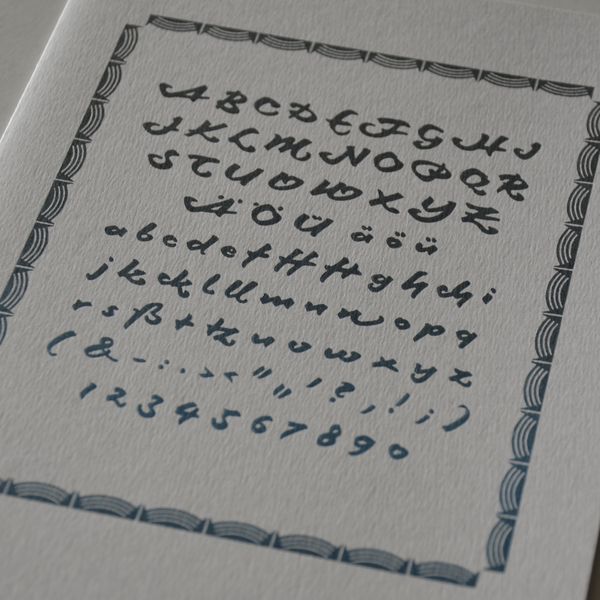 A B C D E F G H I
J K L M N O P Q R
S T U V W X Y Z
Ä Ö Ü ä ö ü
a b c d e f ff ft g h ch i
j k ck l ll m n n o p q
r s ß t tz u v w x y z
( & - : . › ‹ " " ' ? , ! ; )
1 2 3 4 5 6 7 8 9 0